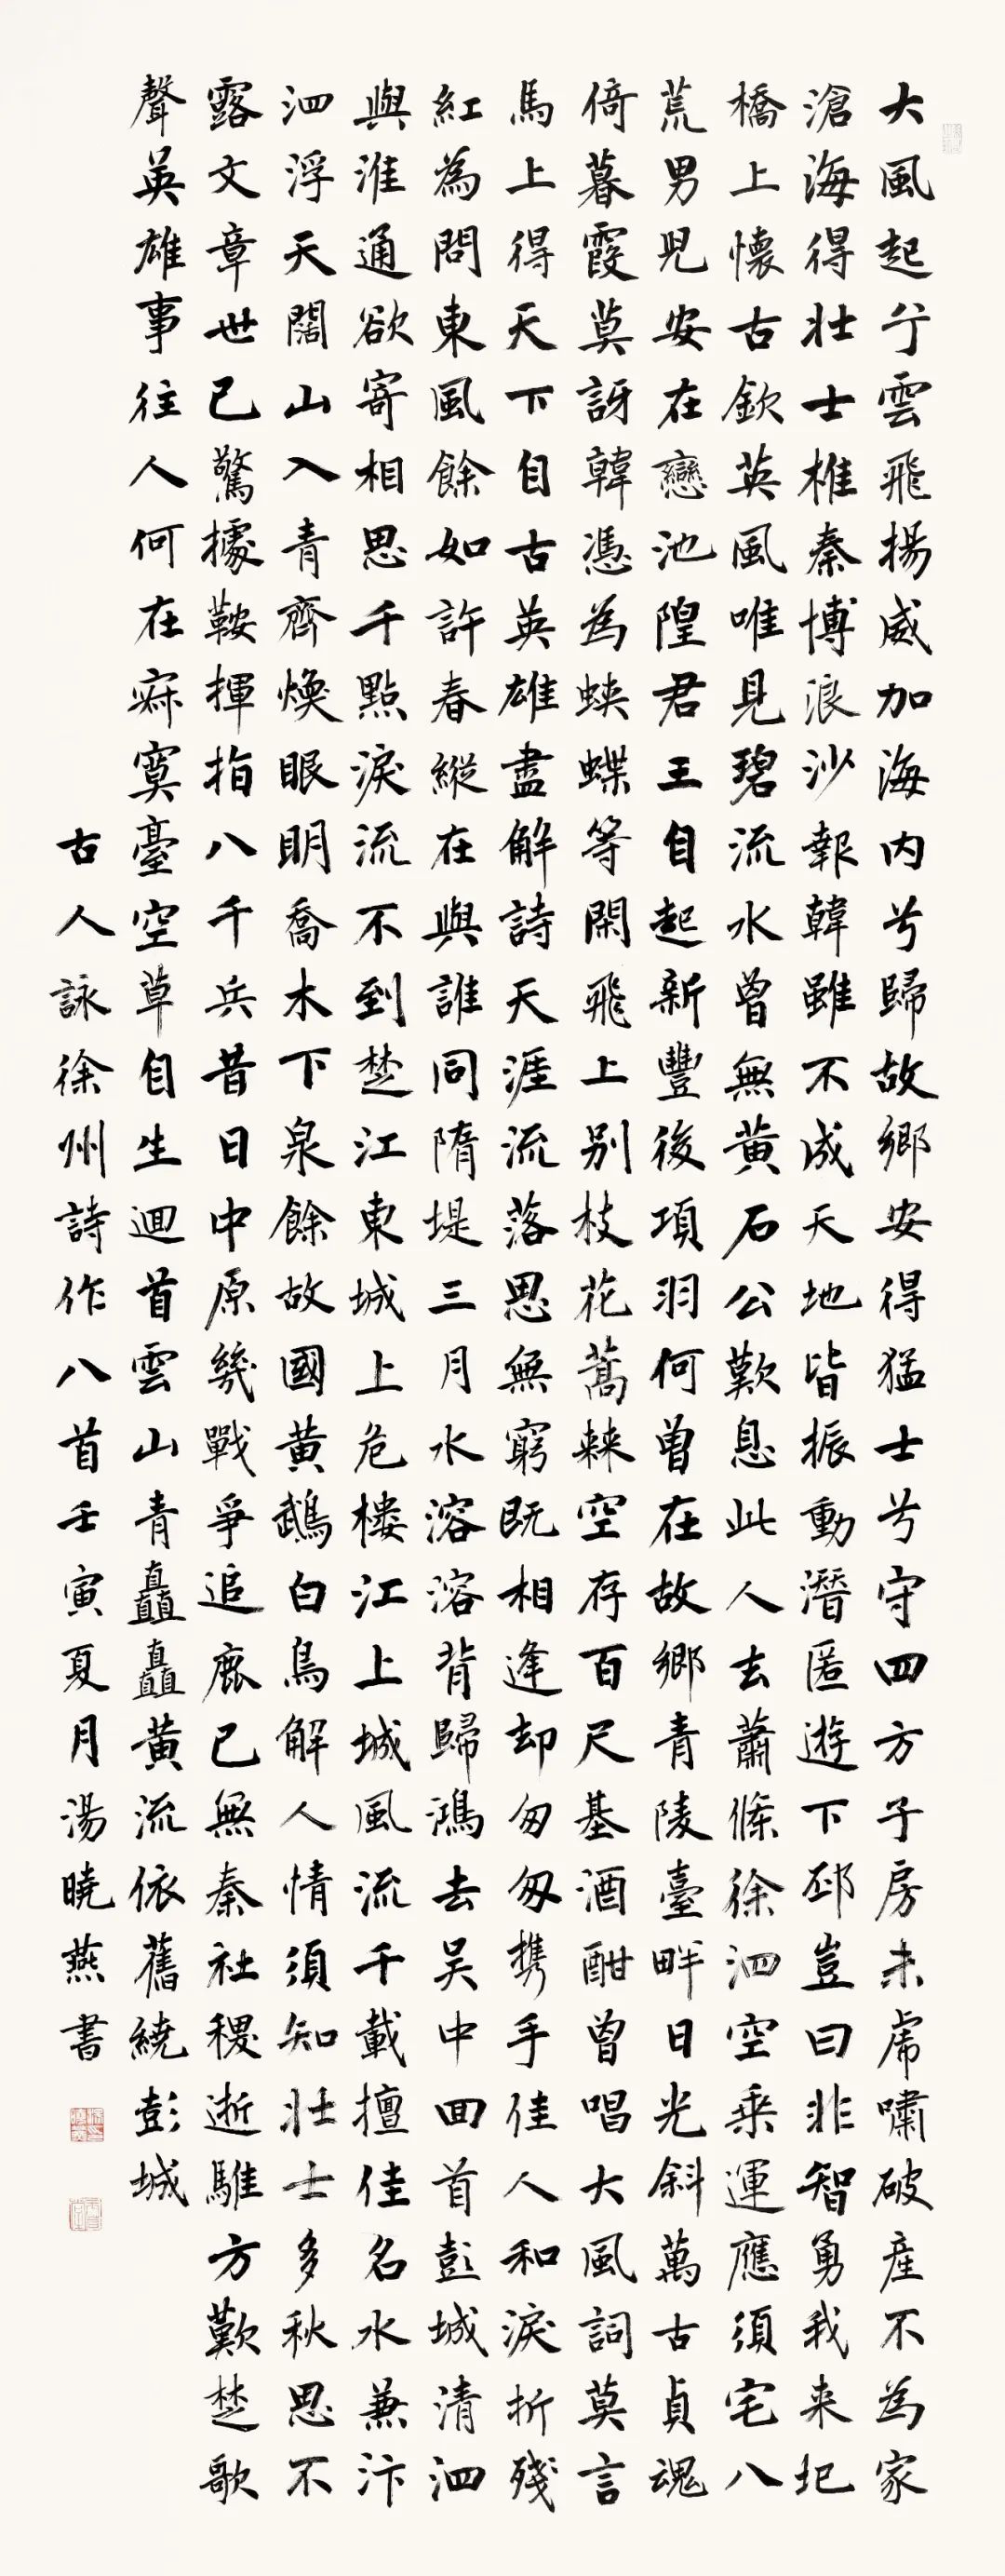 大風起兮雲飛揚威加海内兮歸故鄉安得猛士兮守四方子房未虎嘯破產不為家
滄海得壯士椎秦博浪沙報韓雖不成天地皆振動潛匿遊下邳豈曰非智勇我来圯
橋上懷古欽英風唯見碧流水曾無黄石公歎息此人去蕭條徐泗空乘運應須宅八
荒男兒安在戀池隍君王自起新豐後項羽何曾在故鄉青陵臺畔日光斜萬古貞魂
倚暮霞莫訝韓憑為蛺蝶等閑飛上别枝花蒿棘空存百尺基酒酣曾唱大風詞莫言
馬上得天下自古英雄盡解詩天涯流落思無窮既相逢却匆匆携手佳人和淚折殘
紅為問東風餘如許春縱在與誰同隋堤三月水溶溶背歸鴻去吴中回首彭城清泗
與淮通欲寄相思千點淚流不到楚江東城上危楼江上城風流千載擅佳名水兼汴
泗浮天闊山入青齊煥眼明喬木下泉餘故國黄鵝白鳥解人情須知壯士多秋思不
露文章世已驚據鞍揮指八千兵昔日中原幾戰爭追鹿已無秦社稷逝騅方歎楚歌
聲英雄事往人何在寂寞臺空草自生迴首雲山青矗矗黄流依舊繞彭城
古人詠徐州詩作八首壬寅夏月湯曉燕書